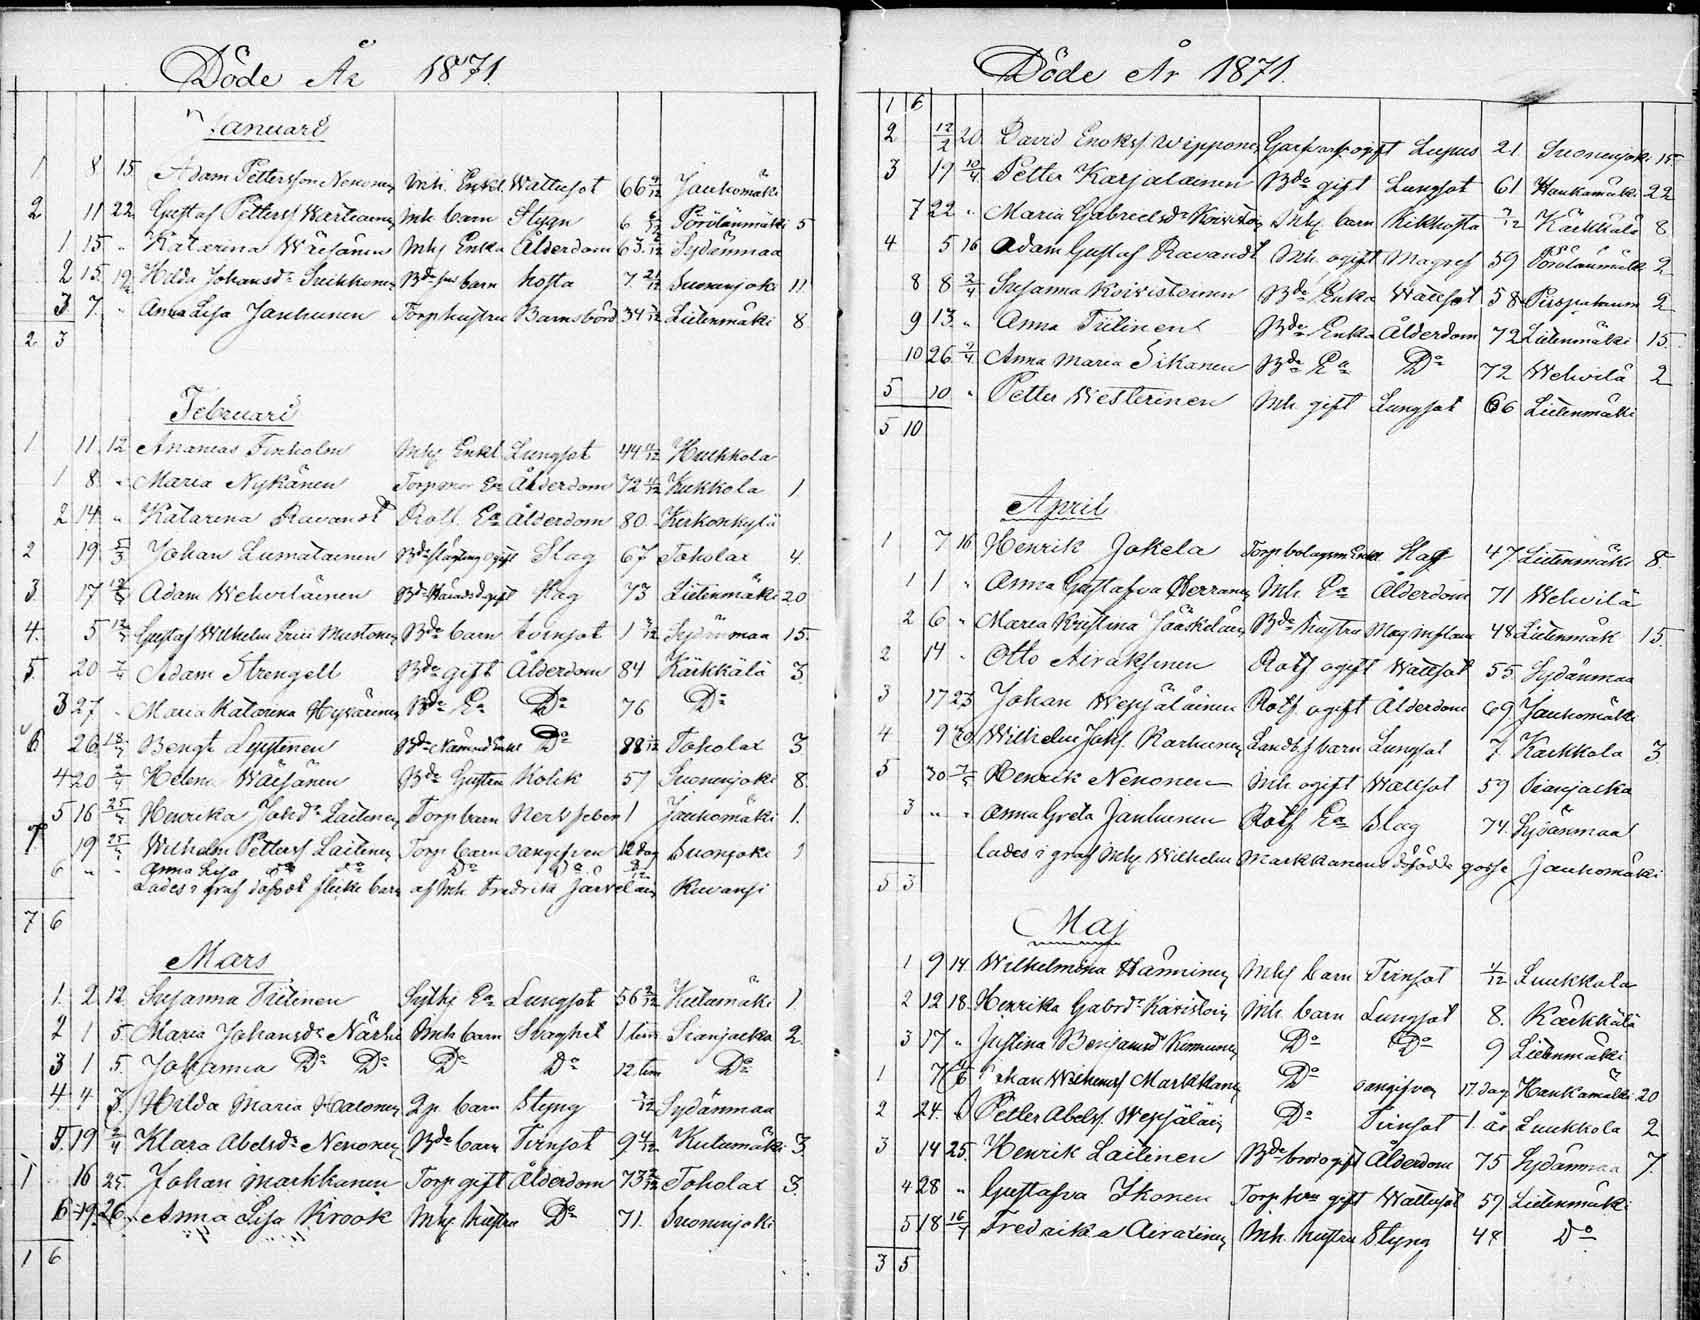 Döde År 1871.
Januari
1 8 15 Adam Pettersson Nenonen Mh. Enkl. Wattusot 66 9/12 Jauhomäki
2 11 22 Gustaf Petters Wartiainen Mh barn Stygn 6 Pörölänmäki 5
1 15 " Katarina Wäisänen Mhs Enka Ålderdom 63 Sydänmaa
2 15 Hilda Johansdr Suihkonen Bde barn hosta 7 Suonenjoki 11
3 7 " Anna Lisa Jauhunen Torp hustru Barnsbörd 34 Lietenmäki 8
2 3
Februari
1 11 12 Ananias Finholm Mhs Enkl Lungsot 44 Hulkkola
1 8 " Maria Nykänen Torp Ea Ålderdom 72 Kukkola 1
2 14 " Katarina Ravandt Rotf. Ea Ålderdom 80 Kirkonkylä
2 19 5/3 Johan Lumatainen Bde ogift Slag 67 Toholax 4.
3 17 Adam Wehviläinen Bde gift Slag 73 Lietenmäki 20
4. 5 Gustaf Wilhelm Erics Mustonen Bde barn tvinsot 1 Sydänmaa 15.
5. 20 Adam Strengell Bde gift Ålderdom 84 Kärkkälä 3.
3 27 " Maria Katarina Hyvärinen Bde Ea Do 76 Do
6 26 Bengt Lyytinen Bde Nämnd Enkl Do 88 Toholax 3
4 20 Helena Wäisänen Bde Hustru Kolik 57 Suonenjoki 8.
5 16 25 Henrika Johdr Laitinen Torp barn Nervfeber 1 Jauhomäki 1.
7 19 25 Wilhelm Petters Laitinen Torp barn oangifven 12 dag Suonjoki 1
6 " " Anna Lisa Do Do Do Do
Lades i graf dödfödt flicke barn af Mh Fredrik Järveläin Kuvansi
7 6
Mars
1. 2 12 Susanna Tiitinen Sytthj Ea Lungsot 56 Kutumäki 1.
2 1 5. Maria Johansdr Närhi Mh barn Svaghet 1 tim Sianjacka 2.
3 1 5. Johanna Do Do Do Do 12 tim Do
4. 4 3. Hilda Maria Halonen Qp. barn Styng Sydänmaa
5. 19 2/4 Klara Abelsdr Nenonen Bde barn Tvinsot 9 4/12 Kutumäki 3.
1 16 25. Johan Markkanen Torp gift Ålderdom 73 Toholax 3.
6 19 26. Anna Lisa Krook Mhs hustru Do 71. Suonenjoki
1 6
Döde År 1871.
1 6
2 12/2 20 David Enoksf Wepponen ogift Lupus 21 Suonenjoki 15
3 19 10/4 Petter Karjalainen Bde gift Lungsot 61 Haukamäki 22
7 22 " Maria Gabrielsdr Koivistoin Mhs barn Kikhosta 7/12 Kärkkälä 8
4 5 16 Adam Gustaf Ravandt Mh. ogift Magref 59 Pörölänmäki 2
8 8 2/4 Susanna Koivistoinen Bde Enka Wattsot 58 2
9 13. " Anna Tiitinen Bde Enka Ålderdom 72 Lietenmäki 15.
10 26 Anna Maria Sikanen Bde Ea Do 72 Wehvilä 2
5 10 " Petter Westerinen Mh. gift Lungsot 66 Lietenmäki
5 10
April
1 7 16 Henrik Jokela Torp bolagsm Enkl Slag 47 Lietenmäki 8.
1 1 " Anna Gustafva Herranen Mh. Ea Ålderdom 71 Wehvilä
2 6 " Maria Kristina Jääskeläin Bde hustru Mag inflam 48 Lietenmäk 15.
2 14 " Otto Airaksinen Rotf ogift Wattsot 55 Sydänmaa
3 17 23 Johan Wepsäläinen Rotf. ogift Ålderdom 69 Jauhomäki
4 9 30 Wilhelm Johs. Karhunen Landbf barn Lungsot 7. Kärkkälä 3
5 30 7/5 Henrik Nenonen Mh ogift Wattsot 59 Sianjacka
3 " " Anna Greta Jauhunen Rotf Ea Slag 74. Sydänmaa
lades i graf Mhs Wilhelm Markkanens dödfödda gosse Jauhomäki
5 3
Maj
1 9 14 Wilhelmina Hänninen Mhs barn Tvinsot 4/12 Luukkola
2 12 18. Henrika Gabrdr Koivistoin Mh. barn Lungsot 8. Kärkkälä
3 17 " Justina Benjamsdr Komunen Do Do 9 Lietenmäki
1 7 Johan Wilhemsf Markkanen Do oangifven 17. dag Haukamäki 20
2 24. Petter Abelsf. Wepsäläin Do Tvinsot 1. år Luukkola 2
3 14 25. Henrik Laitinen Bde ogift Ålderdom 75 Sydänmaa 7
4 28 " Gustafva Ikonen Torp hra gift Wattusot 59 Lietenmäki
5 18 16 Fredrika Airaxinen Mh. hustru Styng 44 Do
3 5